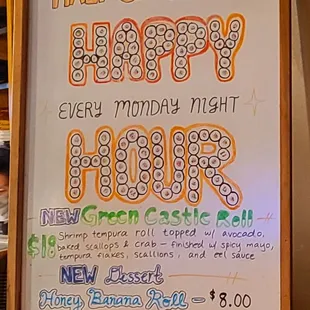 HAPPY
EVERY MONDAY NIGHT
HOUR
NEW Green Castle Roll
$18 Shrimp tempura roll topped w/ avocado,
baked scallops & crab - finished w/ spicy mayo,
tempura flakes, scallions, and eel sauce
NEW Dessert
Honey Banana Roll - $8.00